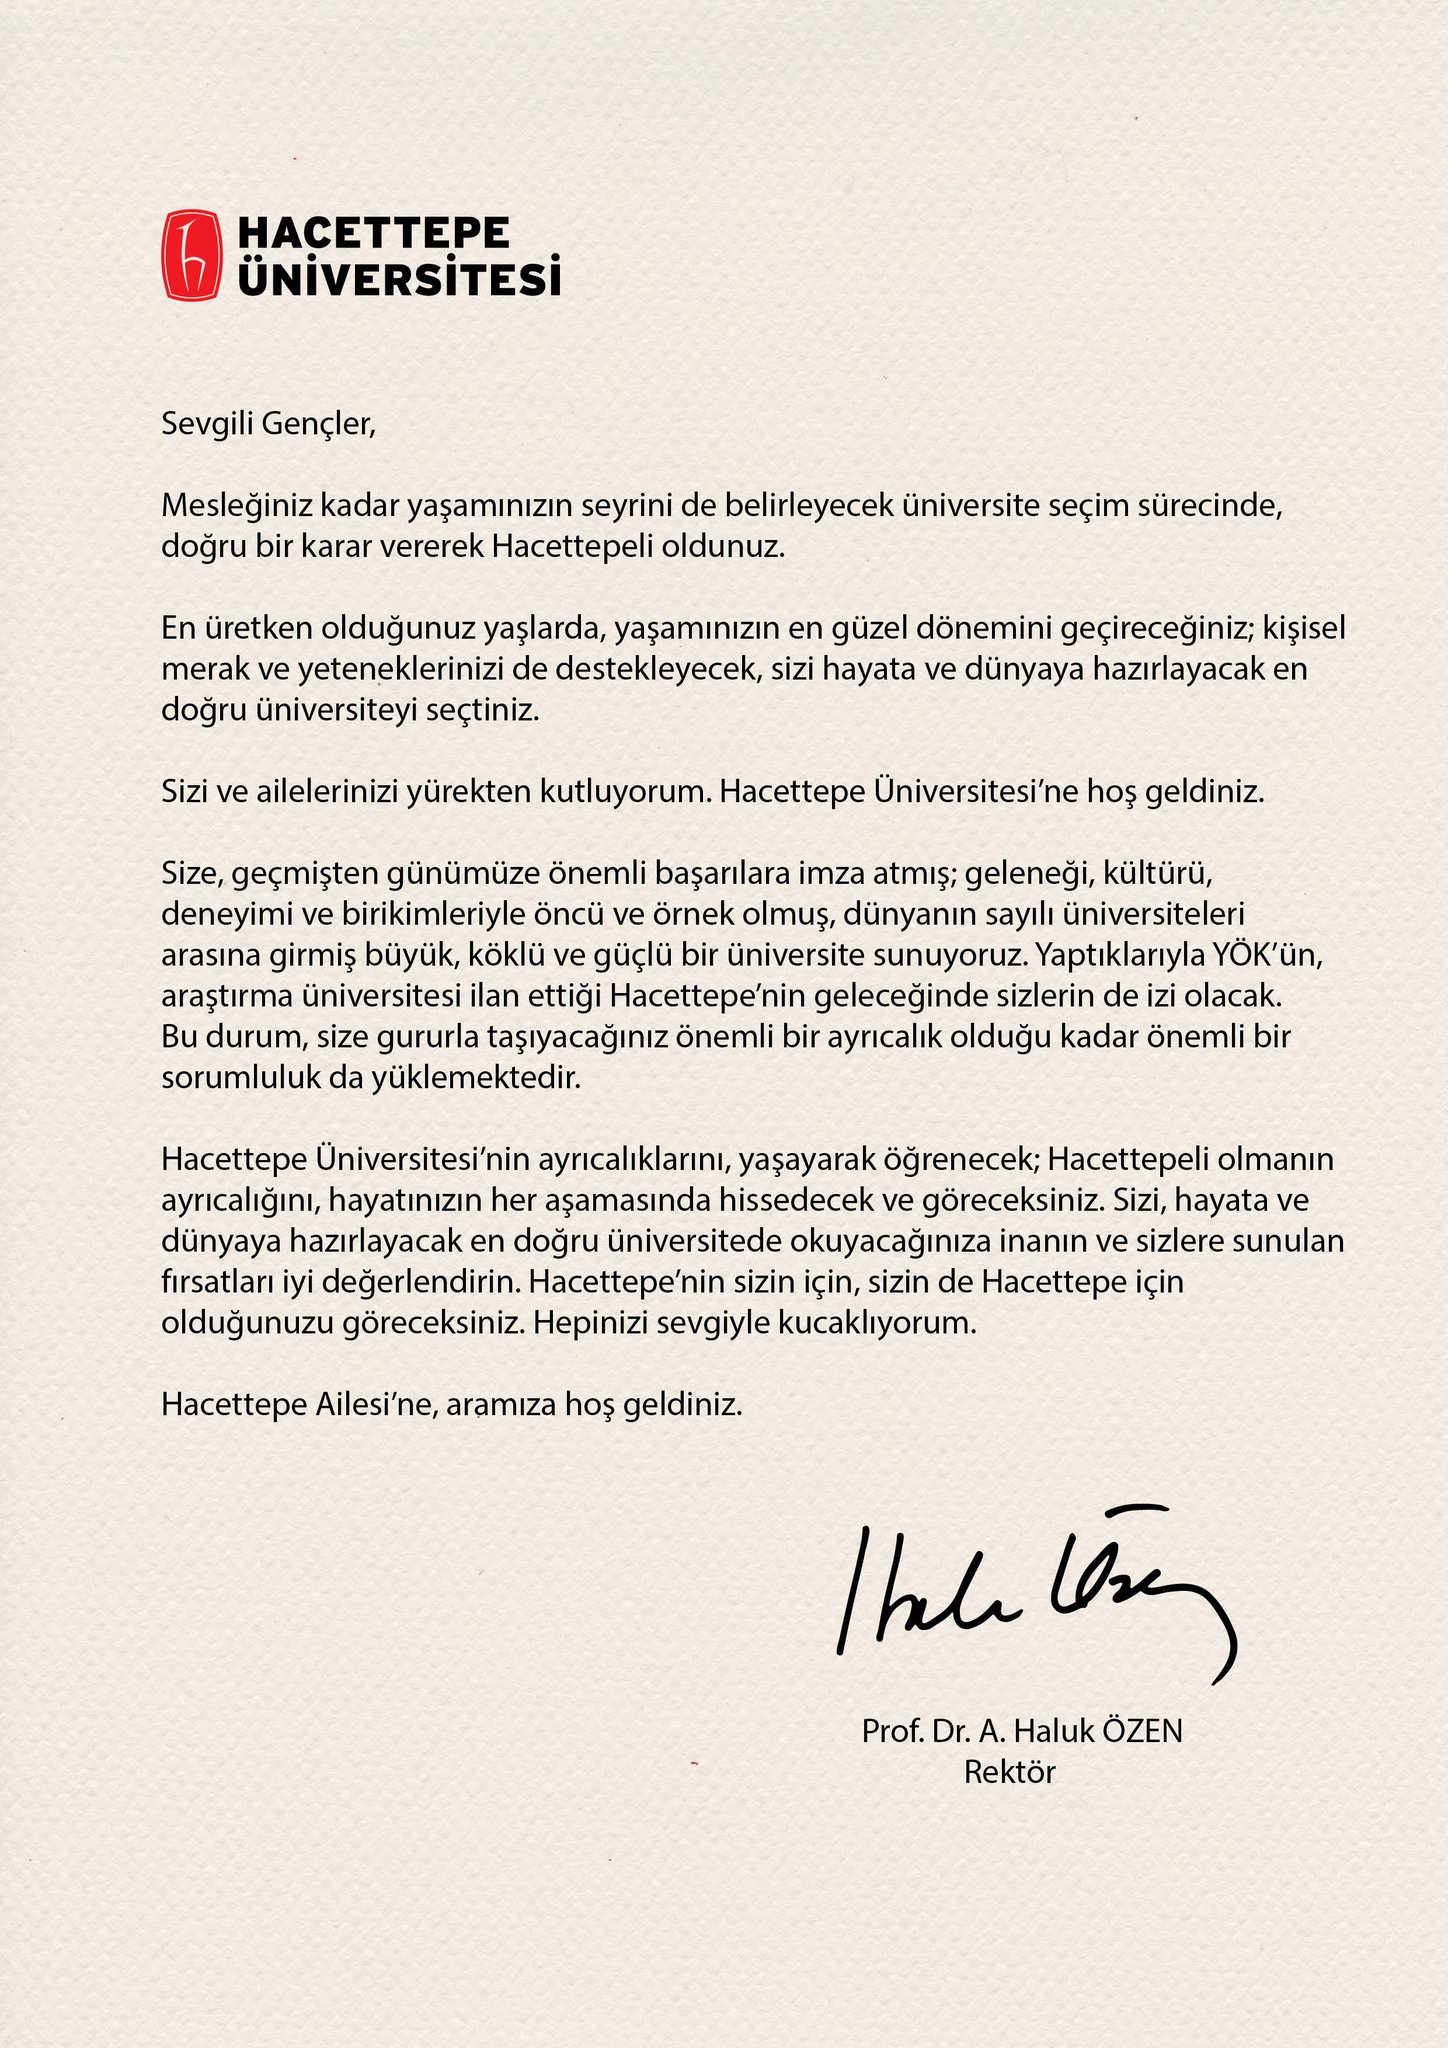 HACETTEPE
ÜNİVERSİTESİ
Sevgili Gençler,
Mesleğiniz kadar yaşamınızın seyrini de belirleyecek üniversite seçim sürecinde,
doğru bir karar vererek Hacettepeli oldunuz.
En üretken olduğunuz yaşlarda, yaşamınızın en güzel dönemini geçireceğiniz; kişisel
merak ve yeteneklerinizi de destekleyecek, sizi hayata ve dünyaya hazırlayacak en
doğru üniversiteyi seçtiniz.
Sizi ve ailelerinizi yürekten kutluyorum. Hacettepe Üniversitesi’ne hoş geldiniz.
Size, geçmişten günümüze önemli başarılara imza atmış; geleneği, kültürü,
deneyimi ve birikimleriyle öncü ve örnek olmuş, dünyanın sayılı üniversiteleri
arasına girmiş büyük, köklü ve güçlü bir üniversite sunuyoruz. Yaptıklarıyla YÖK’ün,
araştırma üniversitesi ilan ettiği Hacettepe’nin geleceğinde sizlerin de izi olacak.
Bu durum, size gururla taşıyacağınız önemli bir ayrıcalık olduğu kadar önemli bir
sorumluluk da yüklemektedir.
Hacettepe Üniversitesi’nin ayrıcalıklarını, yaşayarak öğrenecek; Hacettepeli olmanın
ayrıcalığını, hayatınızın her aşamasında hissedecek ve göreceksiniz. Sizi, hayata ve
dünyaya hazırlayacak en doğru üniversitede okuyacağınıza inanın ve sizlere sunulan
fırsatları iyi değerlendirin. Hacettepe’nin sizin için, sizin de Hacettepe için
olduğunuzu göreceksiniz. Hepinizi sevgiyle kucaklıyorum.
Hacettepe Ailesi’ne, aramıza hoş geldiniz.
Haluk Özen
Prof. Dr. A. Haluk ÖZEN
Rektör